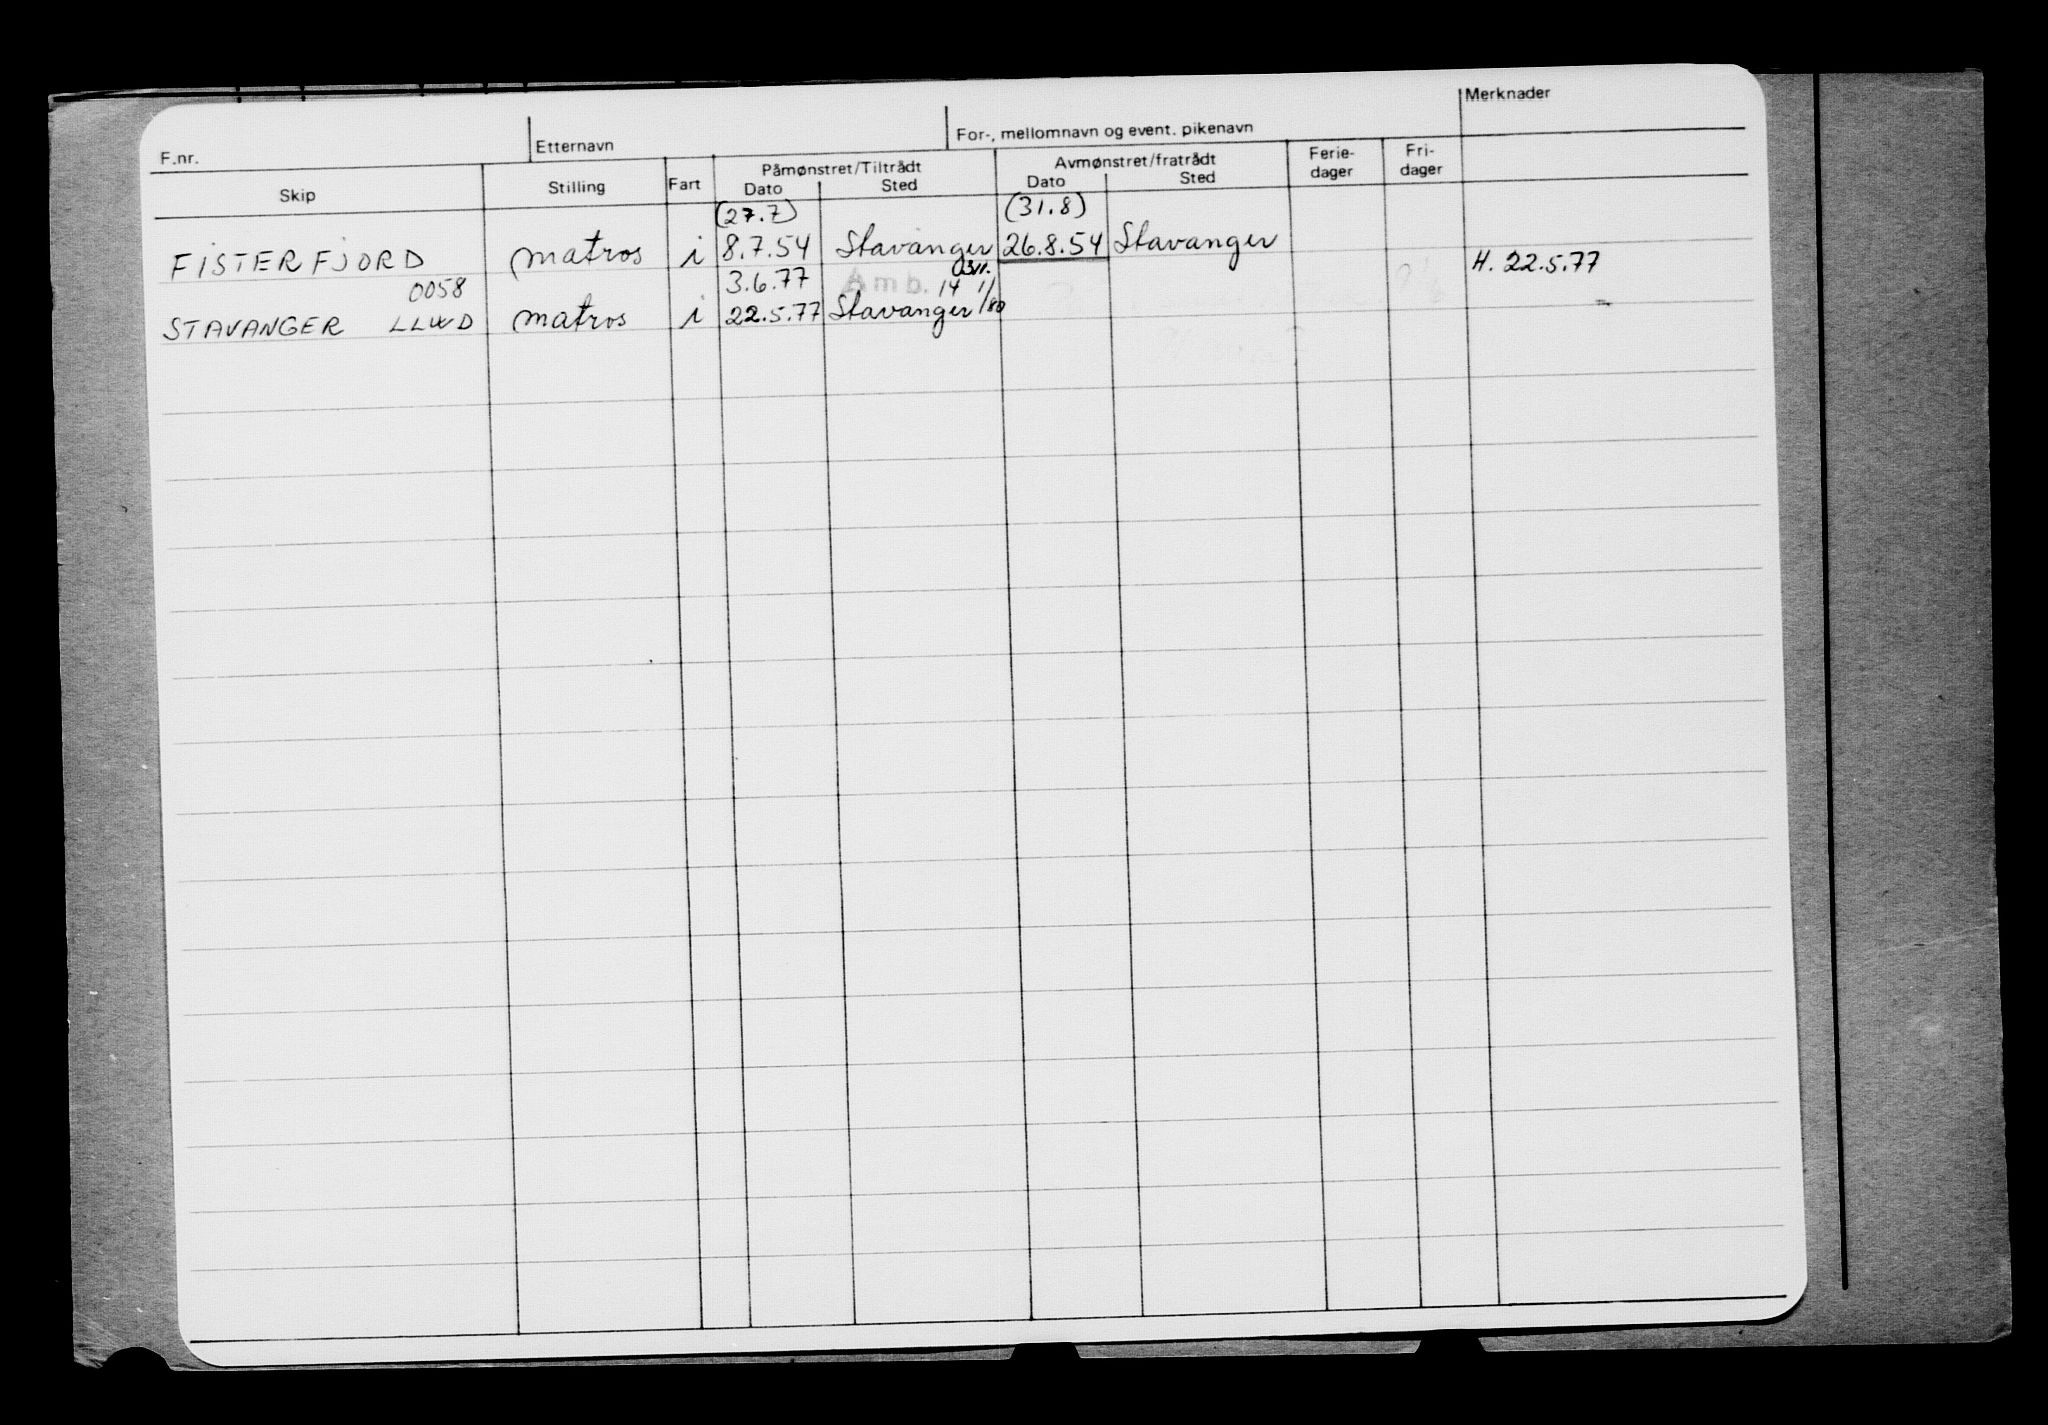 Merknader
F.nr. Etternavn For-, mellomnavn og event. pikenavn
Skip Stilling Fart Påmønstret/Tiltrådt Dato Sted Avmønstret/fratrådt Dato Sted Ferie-dager Fri-dager
(27.7) (31.8)
FISTERFJORD matros i 8.7.54 Stavanger 26.8.54 Stavanger
0058 3.6.77 Amb. 14 H. 22.5.77
STAVANGER LLWD matros i 22.5.77 Stavanger 1/80